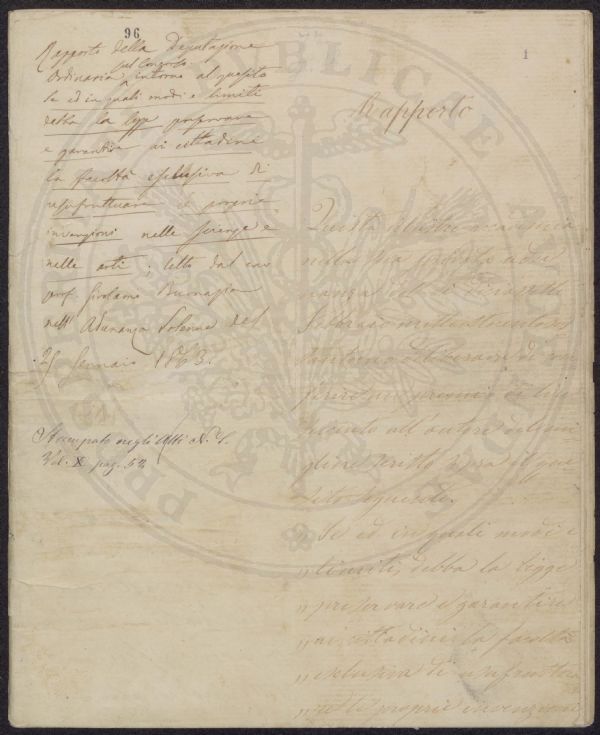 96
Rapporto della Deputazione
Ordinaria sul Concorso intorno al quesito
se ed in quali modi e limiti
debba la legge preservare
e garantire ai cittadini
la facoltà esclusiva di
usufruttuare le proprie
invenzioni nelle scienze e
nelle arti; letto dal cav.
prof. Girolamo Buonazia
nell' Adunanza Solenne del
25 Gennaio 1863.
Stampato negli Atti N. S.
Vol. X pag. 52
1
Rapporto
Questa illustre accademia
nella sua
deliberare di con
ferire un premio di lire
all' autore del mi
gliore scritto sopra il que
sito seguente.
„ Se ed in quali modi e
„ limiti, debba la legge
„ preservare e garantire
„ ai cittadini la facoltà
„ esclusiva di usufruttua
„ le proprie invenzioni
PUBLICAE